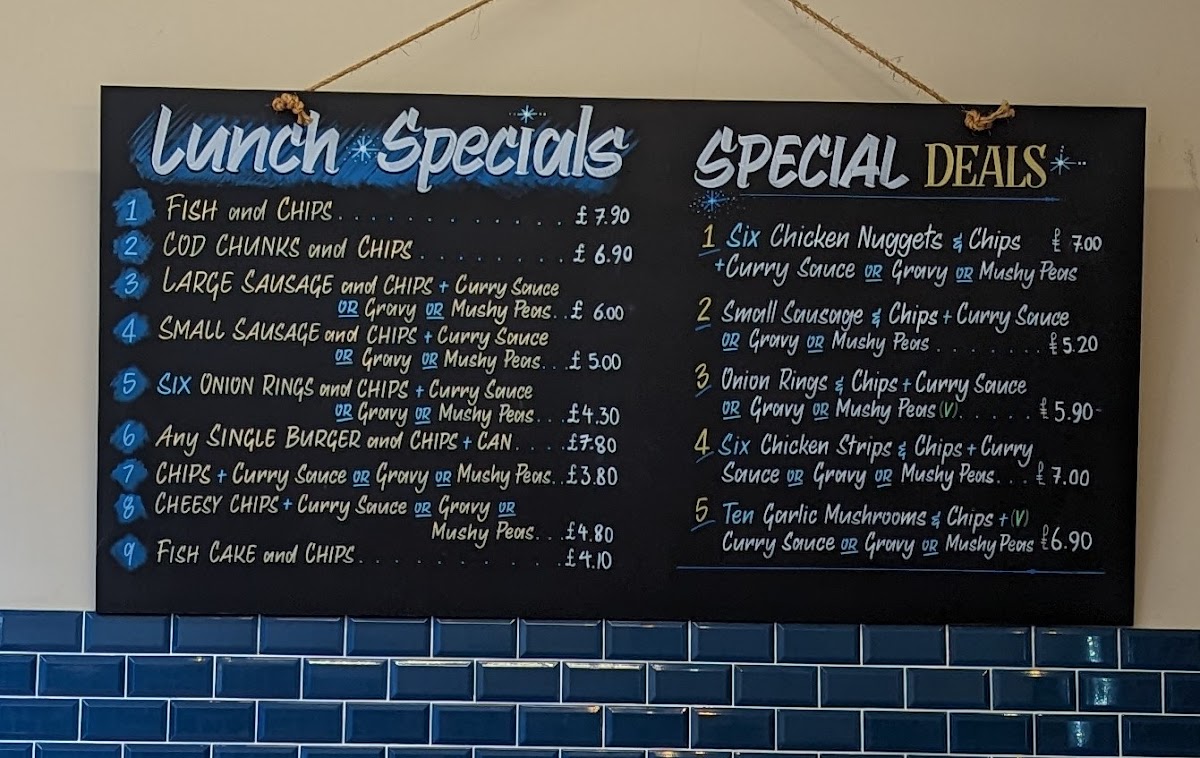 Lunch Specials
1 FISH and CHIPS. . . . . . . . . . . . £7.90
2 COD CHUNKS and CHIPS . . . . . . . . £ 6.90
3 LARGE SAUSAGE and CHIPS + Curry Sauce
OR Gravy OR Mushy Peas. . £ 6.00
4 SMALL SAUSAGE and CHIPS + Curry Sauce
OR Gravy OR Mushy Peas. . . £ 5.00
5 SIX ONION RINGS and CHIPS + Curry Sauce
OR Gravy OR Mushy Peas. . . £4.30
6 Any SINGLE BURGER and CHIPS + CAN. . . . £7.80
7 CHIPS + Curry Sauce OR Gravy OR Mushy Peas. . £3.80
8 CHEESY CHIPS + Curry Sauce OR Gravy OR
Mushy Peas. . . £4.80
9 FISH CAKE and CHIPS. . . . . . . . . . . £4.10
SPECIAL DEALS
1 Six Chicken Nuggets & Chips £ 7.00
+Curry Sauce OR Gravy OR Mushy Peas
2 Small Sausage & Chips + Curry Sauce
OR Gravy OR Mushy Peas . . . . . . . £5.20
3 Onion Rings & Chips + Curry Sauce
OR Gravy OR Mushy Peas (V). . . . . . £5.90
4 Six Chicken Strips & Chips + Curry
Sauce OR Gravy OR Mushy Peas. . . £7.00
5 Ten Garlic Mushrooms & Chips + (V)
Curry Sauce OR Gravy OR Mushy Peas £6.90